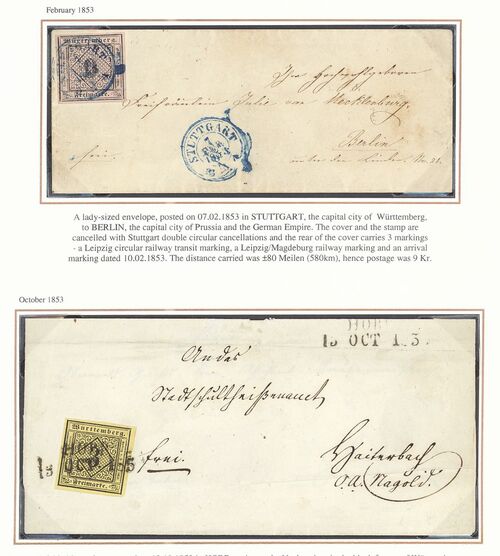 February 1853
Württemberg.
Freimarke.
Ihro Hochwohlgeboren
Freifräulein Julie von Mecklenburg.
Berlin
frei.
unter den Linden No. 21.
STUTTGART
A lady-sized envelope, posted on 07.02.1853 in STUTTGART, the capital city of Württemberg,
to BERLIN, the capital city of Prussia and the German Empire. The cover and the stamp are
cancelled with Stuttgart double circular cancellations and the rear of the cover carries 3 markings
- a Leipzig circular railway transit marking, a Leipzig/Magdeburg railway marking and an arrival
marking dated 10.02.1853. The distance carried was ±80 Meilen (580km), hence postage was 9 Kr.
October 1853
An das
Stadtschultheißenamt
Württemberg.
3
Freimarke.
frei.
Haiterbach
O.A. Nagold.